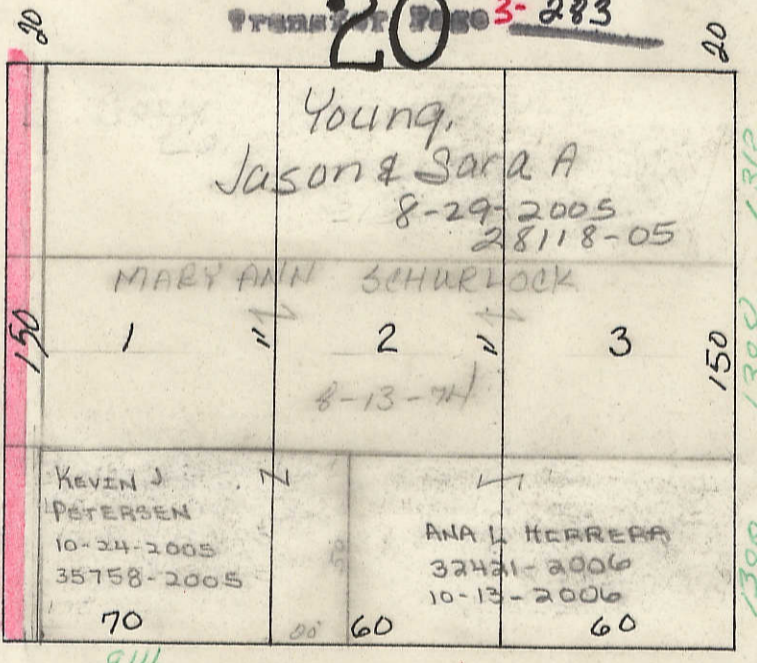 Transfer Page 3- 283
20
20
20
Young,
Jason & Sara A
8-29-2005
28118-05
MARY ANN SCHURLOCK
150
1
2
3
150
8-13-74
KEVIN J
PETERSEN
10-24-2005
35758-2005
ANA L HERRERA
32421-2006
10-13-2006
70
60
60
1312
1308
1300